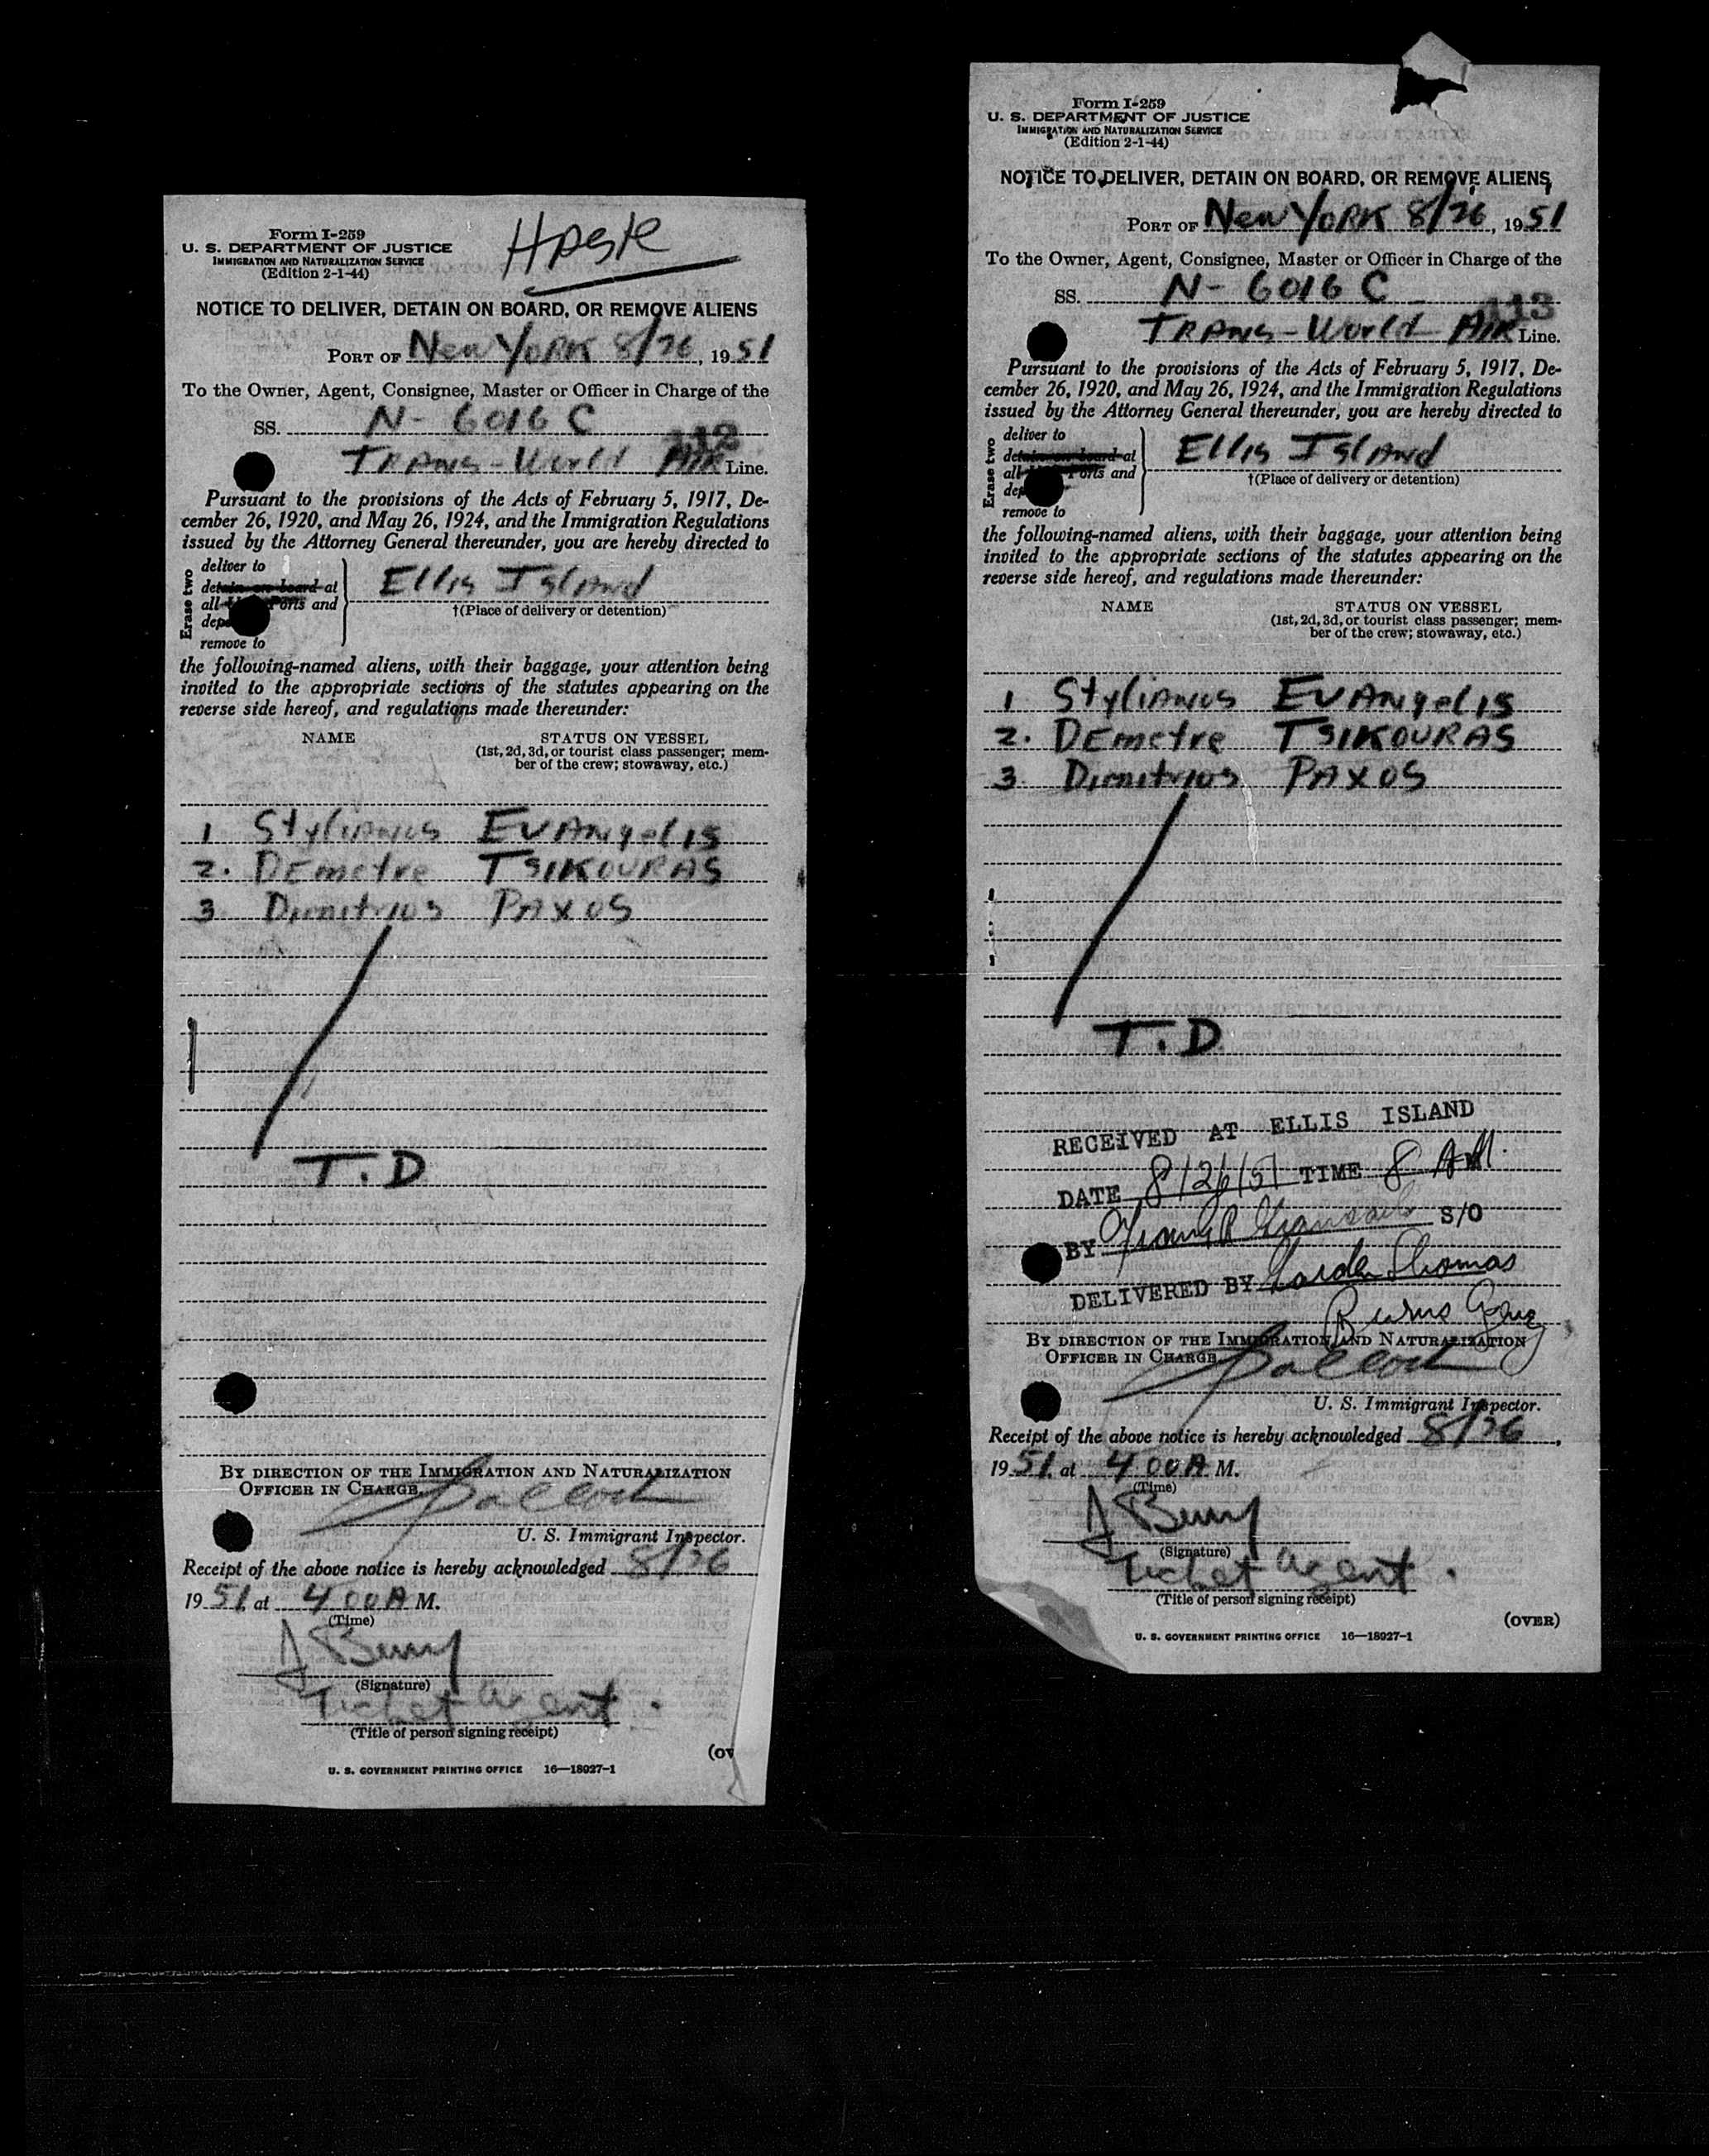 Form I-259
U. S. DEPARTMENT OF JUSTICE
IMMIGRATION AND NATURALIZATION SERVICE
(Edition 2-1-44)
NOTICE TO DELIVER, DETAIN ON BOARD, OR REMOVE ALIENS
PORT OF New York 8/26, 1951
To the Owner, Agent, Consignee, Master or Officer in Charge of the
SS. N-6016C
112
TRANS-World AIR Line.
Pursuant to the provisions of the Acts of February 5, 1917, De-
cember 26, 1920, and May 26, 1924, and the Immigration Regulations
issued by the Attorney General thereunder, you are hereby directed to
Erase two
deliver to
detain on board at
all Ports and
remove to
Ellis Island
†(Place of delivery or detention)
the following-named aliens, with their baggage, your attention being
invited to the appropriate sections of the statutes appearing on the
reverse side hereof, and regulations made thereunder:
NAME STATUS ON VESSEL
(1st, 2d, 3d, or tourist class passenger; mem-
ber of the crew; stowaway, etc.)
1 Stylianos EVANgelis
2. DEmetre TSIKOURAS
3 Dimitrios PAXOS
T.D
BY DIRECTION OF THE IMMIGRATION AND NATURALIZATION
OFFICER IN CHARGE
U. S. Immigrant Inspector.
Receipt of the above notice is hereby acknowledged 8/26
1951, at 4 00 A M.
(Time)
(Signature)
Ticket agent.
(Title of person signing receipt)
(OV
U. S. GOVERNMENT PRINTING OFFICE 16—18927-1
Form I-259
U. S. DEPARTMENT OF JUSTICE
IMMIGRATION AND NATURALIZATION SERVICE
(Edition 2-1-44)
NOTICE TO DELIVER, DETAIN ON BOARD, OR REMOVE ALIENS
PORT OF New York 8/26, 1951
To the Owner, Agent, Consignee, Master or Officer in Charge of the
SS. N-6016C
113
TRANS-World AIR Line.
Pursuant to the provisions of the Acts of February 5, 1917, De-
cember 26, 1920, and May 26, 1924, and the Immigration Regulations
issued by the Attorney General thereunder, you are hereby directed to
Erase two
deliver to
detain on board at
all Ports and
remove to
Ellis Island
†(Place of delivery or detention)
the following-named aliens, with their baggage, your attention being
invited to the appropriate sections of the statutes appearing on the
reverse side hereof, and regulations made thereunder:
NAME STATUS ON VESSEL
(1st, 2d, 3d, or tourist class passenger; mem-
ber of the crew; stowaway, etc.)
1 Stylianos EVANgelis
2. DEmetre TSIKOURAS
3 Dimitrios PAXOS
T.D.
RECEIVED AT ELLIS ISLAND
DATE 8/26/51 TIME 8 AM.
BY S/O
DELIVERED BY Thomas
BY DIRECTION OF THE IMMIGRATION AND NATURALIZATION
OFFICER IN CHARGE
U. S. Immigrant Inspector.
Receipt of the above notice is hereby acknowledged 8/26,
1951, at 4 00 A M.
(Time)
(Signature)
Ticket agent.
(Title of person signing receipt)
(OVER)
U. S. GOVERNMENT PRINTING OFFICE 16—18927-1